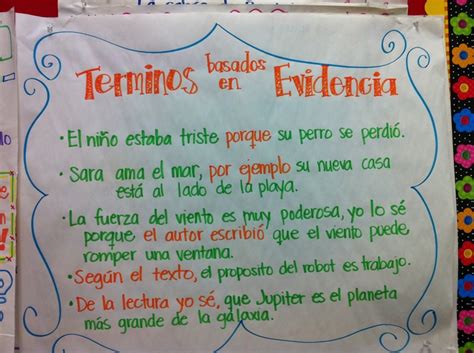 Terminos basados en Evidencia
• El niño estaba triste porque su perro se perdió.
• Sara ama el mar, por ejemplo su nueva casa
está al lado de la playa.
• La fuerza del viento es muy poderosa, yo lo sé
porque el autor escribió que el viento puede
romper una ventana.
• Según el texto, el proposito del robot es trabajo.
• De la lectura yo sé, que Jupiter es el planeta
más grande de la galaxia.